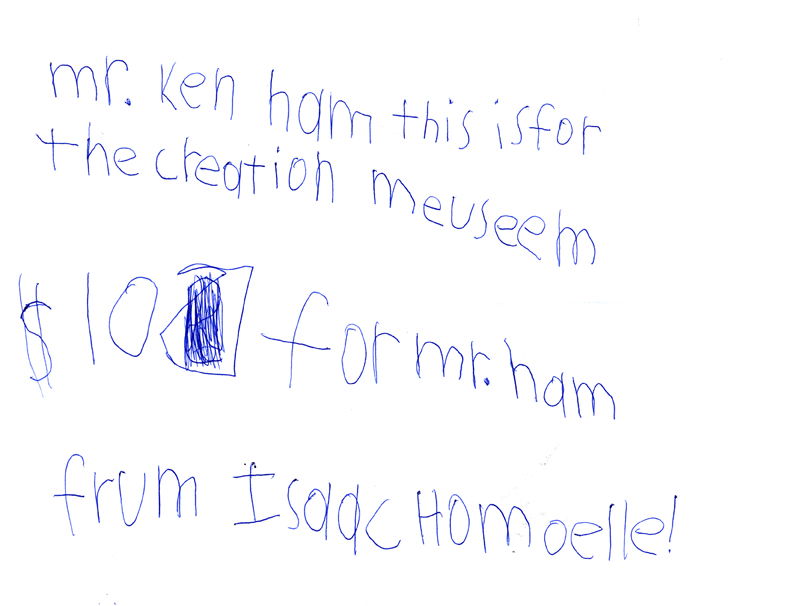 mr. Ken ham this isfor
the creation meuseem
$10 for mr. ham
frum Isaac Homoelle!